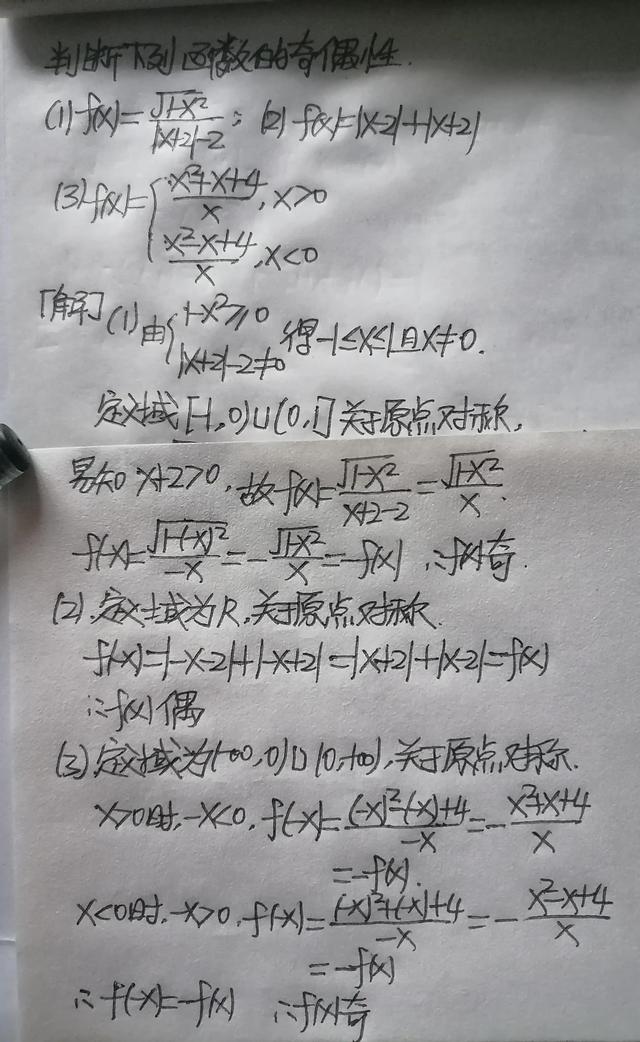 判断下列函数的奇偶性.
(1) f(x)=√(1-x²)/(|x+2|-2); (2) f(x)=|x-2|+|x+2|
(3) f(x)={(x²+x+4)/x, x>0
(x²-x+4)/x, x<0
「解」(1) 由{1-x²≥0
|x+2|-2≠0 得-1≤x≤1且x≠0.
定义域[-1,0)∪(0,1]关于原点对称,
易知 x+2>0, 故f(x)=√(1-x²)/(x+2-2)=√(1-x²)/x.
f(-x)=√(1-(-x)²)/(-x)=-√(1-x²)/x=-f(x) ∴f(x)奇.
(2). 定义域为R, 关于原点对称.
f(-x)=|-x-2|+|-x+2|=|x+2|+|x-2|=f(x)
∴f(x)偶
(3). 定义域为(-∞,0)∪(0,+∞), 关于原点对称.
x>0时, -x<0, f(-x)=((-x)²-(-x)+4)/(-x)=-(x²+x+4)/x
=-f(x).
x<0时, -x>0, f(-x)=((-x)²+(-x)+4)/(-x)=-(x²-x+4)/x
=-f(x)
∴f(-x)=-f(x) ∴f(x)奇